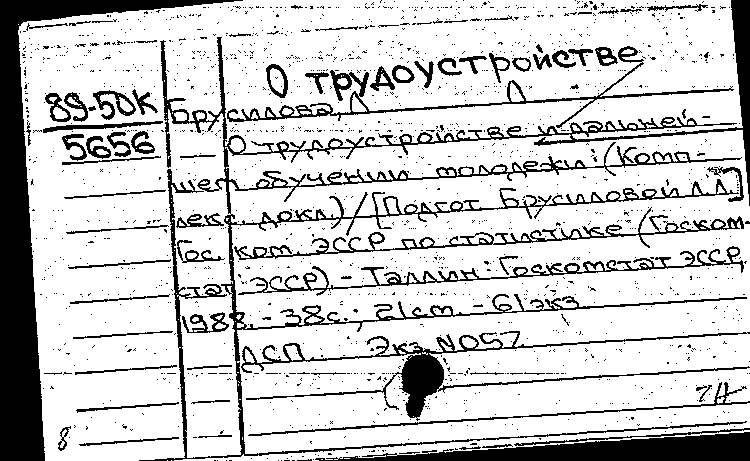 О трудоустройстве
89-5DК Брусилова, Л Л
5656 О трудоустройстве и дальней-
шем обучении молодежи: (Комп-
лекс. докл.) / [Подгот. Брусиловой Л.Л.]
Гос. ком. ЭССР по статистике (Госком-
стат ЭССР). - Таллин: Госкомстат ЭССР,
1988. - 38с.; 21см. - 61экз
ДСП. Экз. N057
8